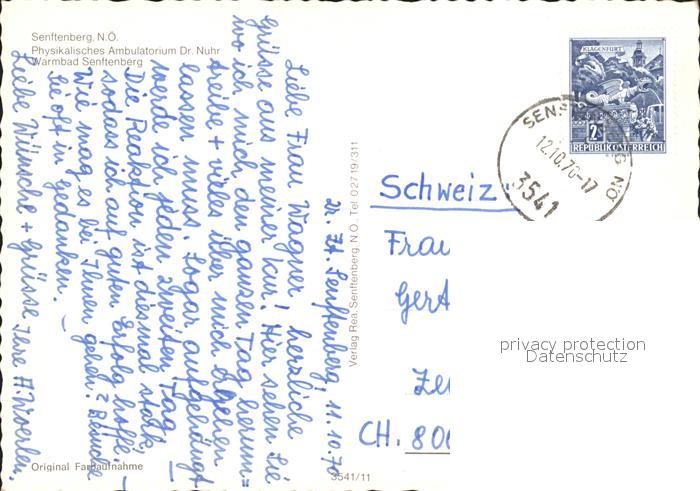 Senftenberg, N.Ö.
Physikalisches Ambulatorium Dr. Nuhr
Warmbad Senftenberg
Z. Zt. Senftenberg, 11.10.70
Liebe Frau Wagner! herzliche
Grüsse aus meiner Kur! Hier sehen Sie
wo ich mich den ganzen Tag herum=
treibe + vieles über mich ergehen
lassen muss. Sogar aufgehängt
werde ich jeden zweiten Tag —
Die Reaktion ist diesmal stark
sodass ich auf guten Erfolg hoffe. —
Wie mag es bei Ihnen gehen? Besuche
Sie oft in Gedanken. —
Liebe Wünsche + Grüsse Ihre A. Woerlen.
Original Farbaufnahme
Verlag Rea, Senftenberg, N.Ö., Tel 02719/311
3541/11
KLAGENFURT
2S
REPUBLIK ÖSTERREICH
SENFTENBERG NÖ
12.10.70-17
3541
Schweiz.
Frau
Gert
CH. 800
privacy protection
Datenschutz